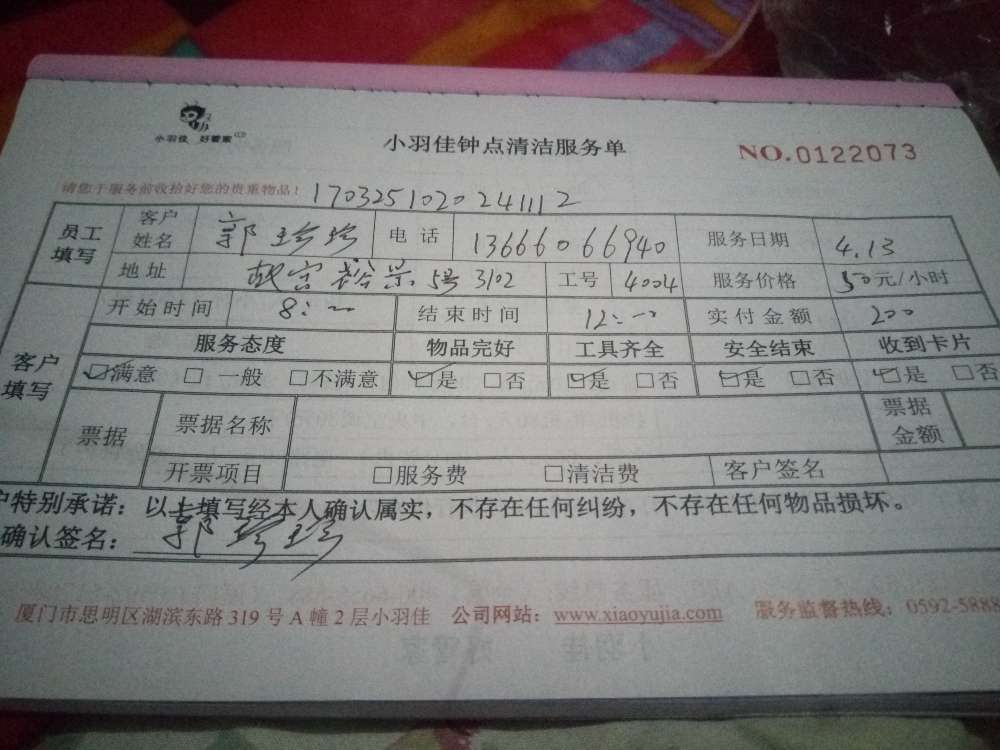 小羽佳 好管家
小羽佳钟点清洁服务单
NO.0122073
请您于服务前收拾好您的贵重物品！
1703251020241112
员工填写 客户姓名 郭珍珍 电话 13666066940 服务日期 4.13
地址 故宫裕景5号3102 工号 4004 服务价格 50元/小时
客户填写 开始时间 8:00 结束时间 12:00 实付金额 200
服务态度 物品完好 工具齐全 安全结束 收到卡片
☑满意 □一般 □不满意 ☑是 □否 ☑是 □否 ☑是 □否 ☑是 □否
票据 票据名称 票据金额
开票项目 □服务费 □清洁费 客户签名
户特别承诺：以上填写经本人确认属实，不存在任何纠纷，不存在任何物品损坏。
确认签名：郭珍珍
厦门市思明区湖滨东路319号A幢2层小羽佳 公司网站：www.xiaoyujia.com 服务监督热线：0592-5888